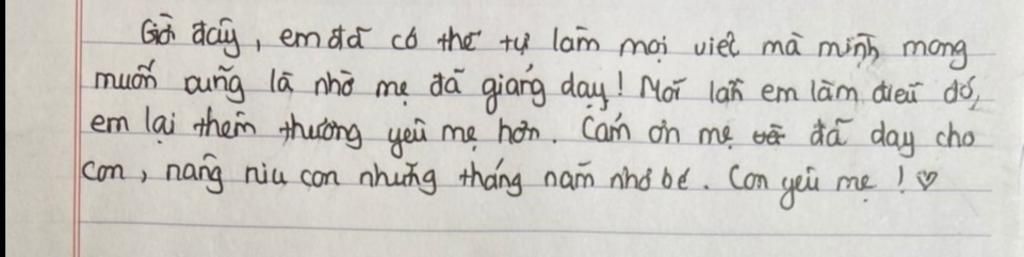 Giờ đây, em đã có thể tự làm mọi việc mà mình mong
muốn cũng là nhờ mẹ đã giảng dạy! Mỗi lần em làm điều đó,
em lại thêm thương yêu mẹ hơn. Cảm ơn mẹ đã dạy cho
con, nâng niu con những tháng năm nhỏ bé. Con yêu mẹ! ♡